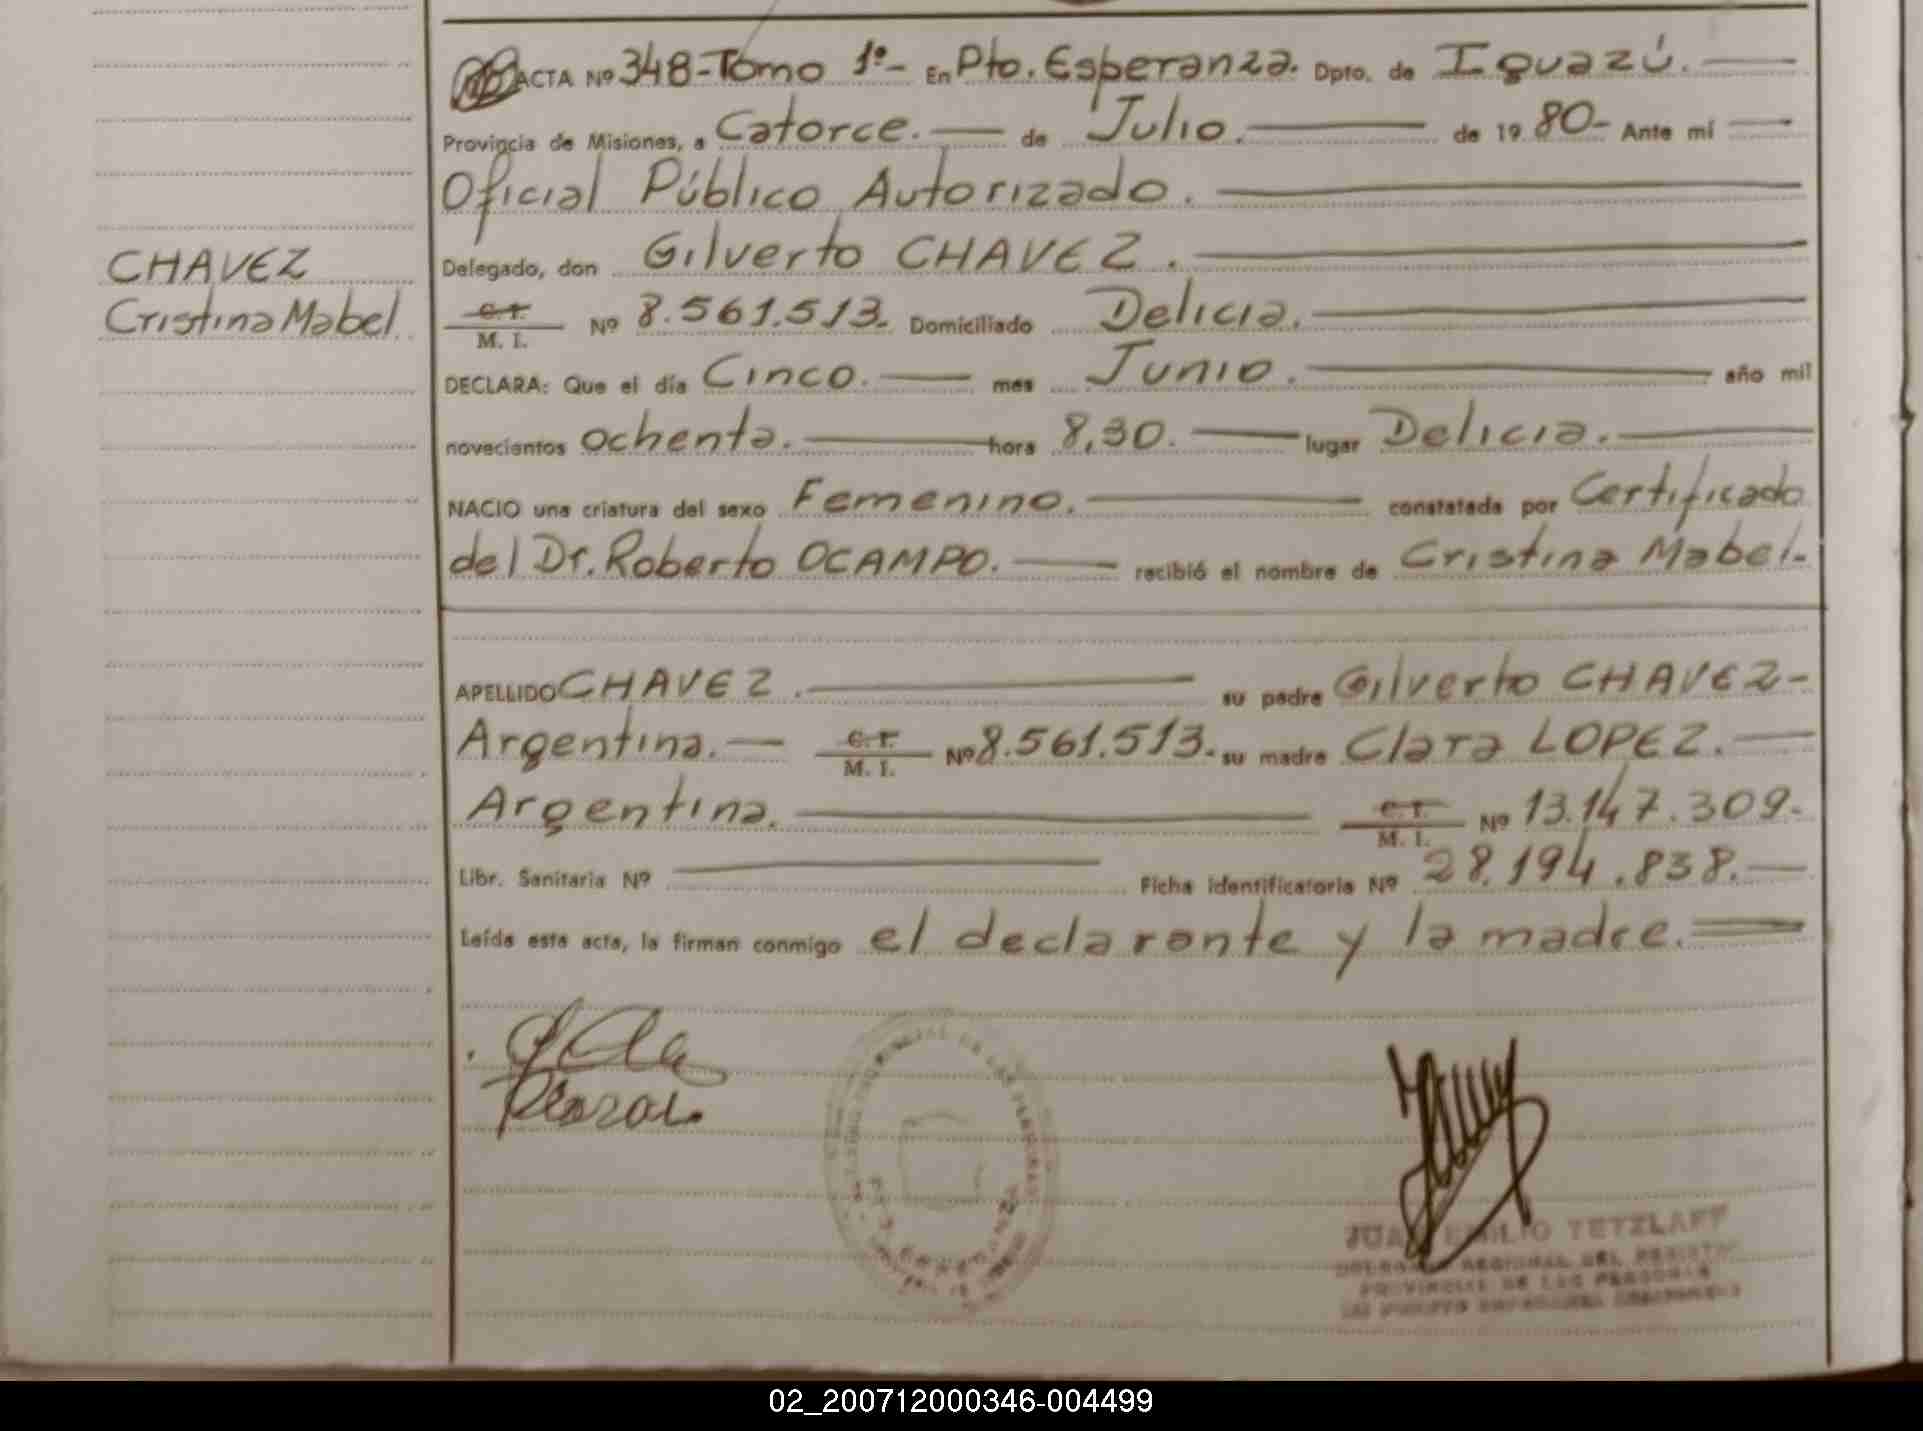 ACTA Nº 348-Tomo 1º- En Pto. Esperanza. Dpto. de Iguazú.
Provincia de Misiones, a Catorce. de Julio. de 19 80- Ante mí
Oficial Público Autorizado.
Delegado, don Gilverto CHAVEZ.
CHAVEZ
Cristina Mabel.
C. I.
M. I. Nº 8.561.513. Domiciliado Delicia.
DECLARA: Que el día Cinco. mes Junio. año mil
novecientos ochenta. hora 8,30. lugar Delicia.
NACIO una criatura del sexo Femenino. constatada por Certificado
del Dr. Roberto OCAMPO. recibió el nombre de Cristina Mabel-
APELLIDO CHAVEZ. su padre Gilverto CHAVEZ-
Argentina. C. I. M. I. Nº 8.561.513. su madre Clara LOPEZ.
Argentina. C. I. M. I. Nº 13.147.309-
Libr. Sanitaria Nº Ficha identificatoria Nº 28.194.838.
Leída esta acta, la firman conmigo el declarante y la madre.
JUAN EMILIO TETZLAFF
REGIONAL DEL
PROVINCIAL DE LAS PERSONAS
02_200712000346-004499